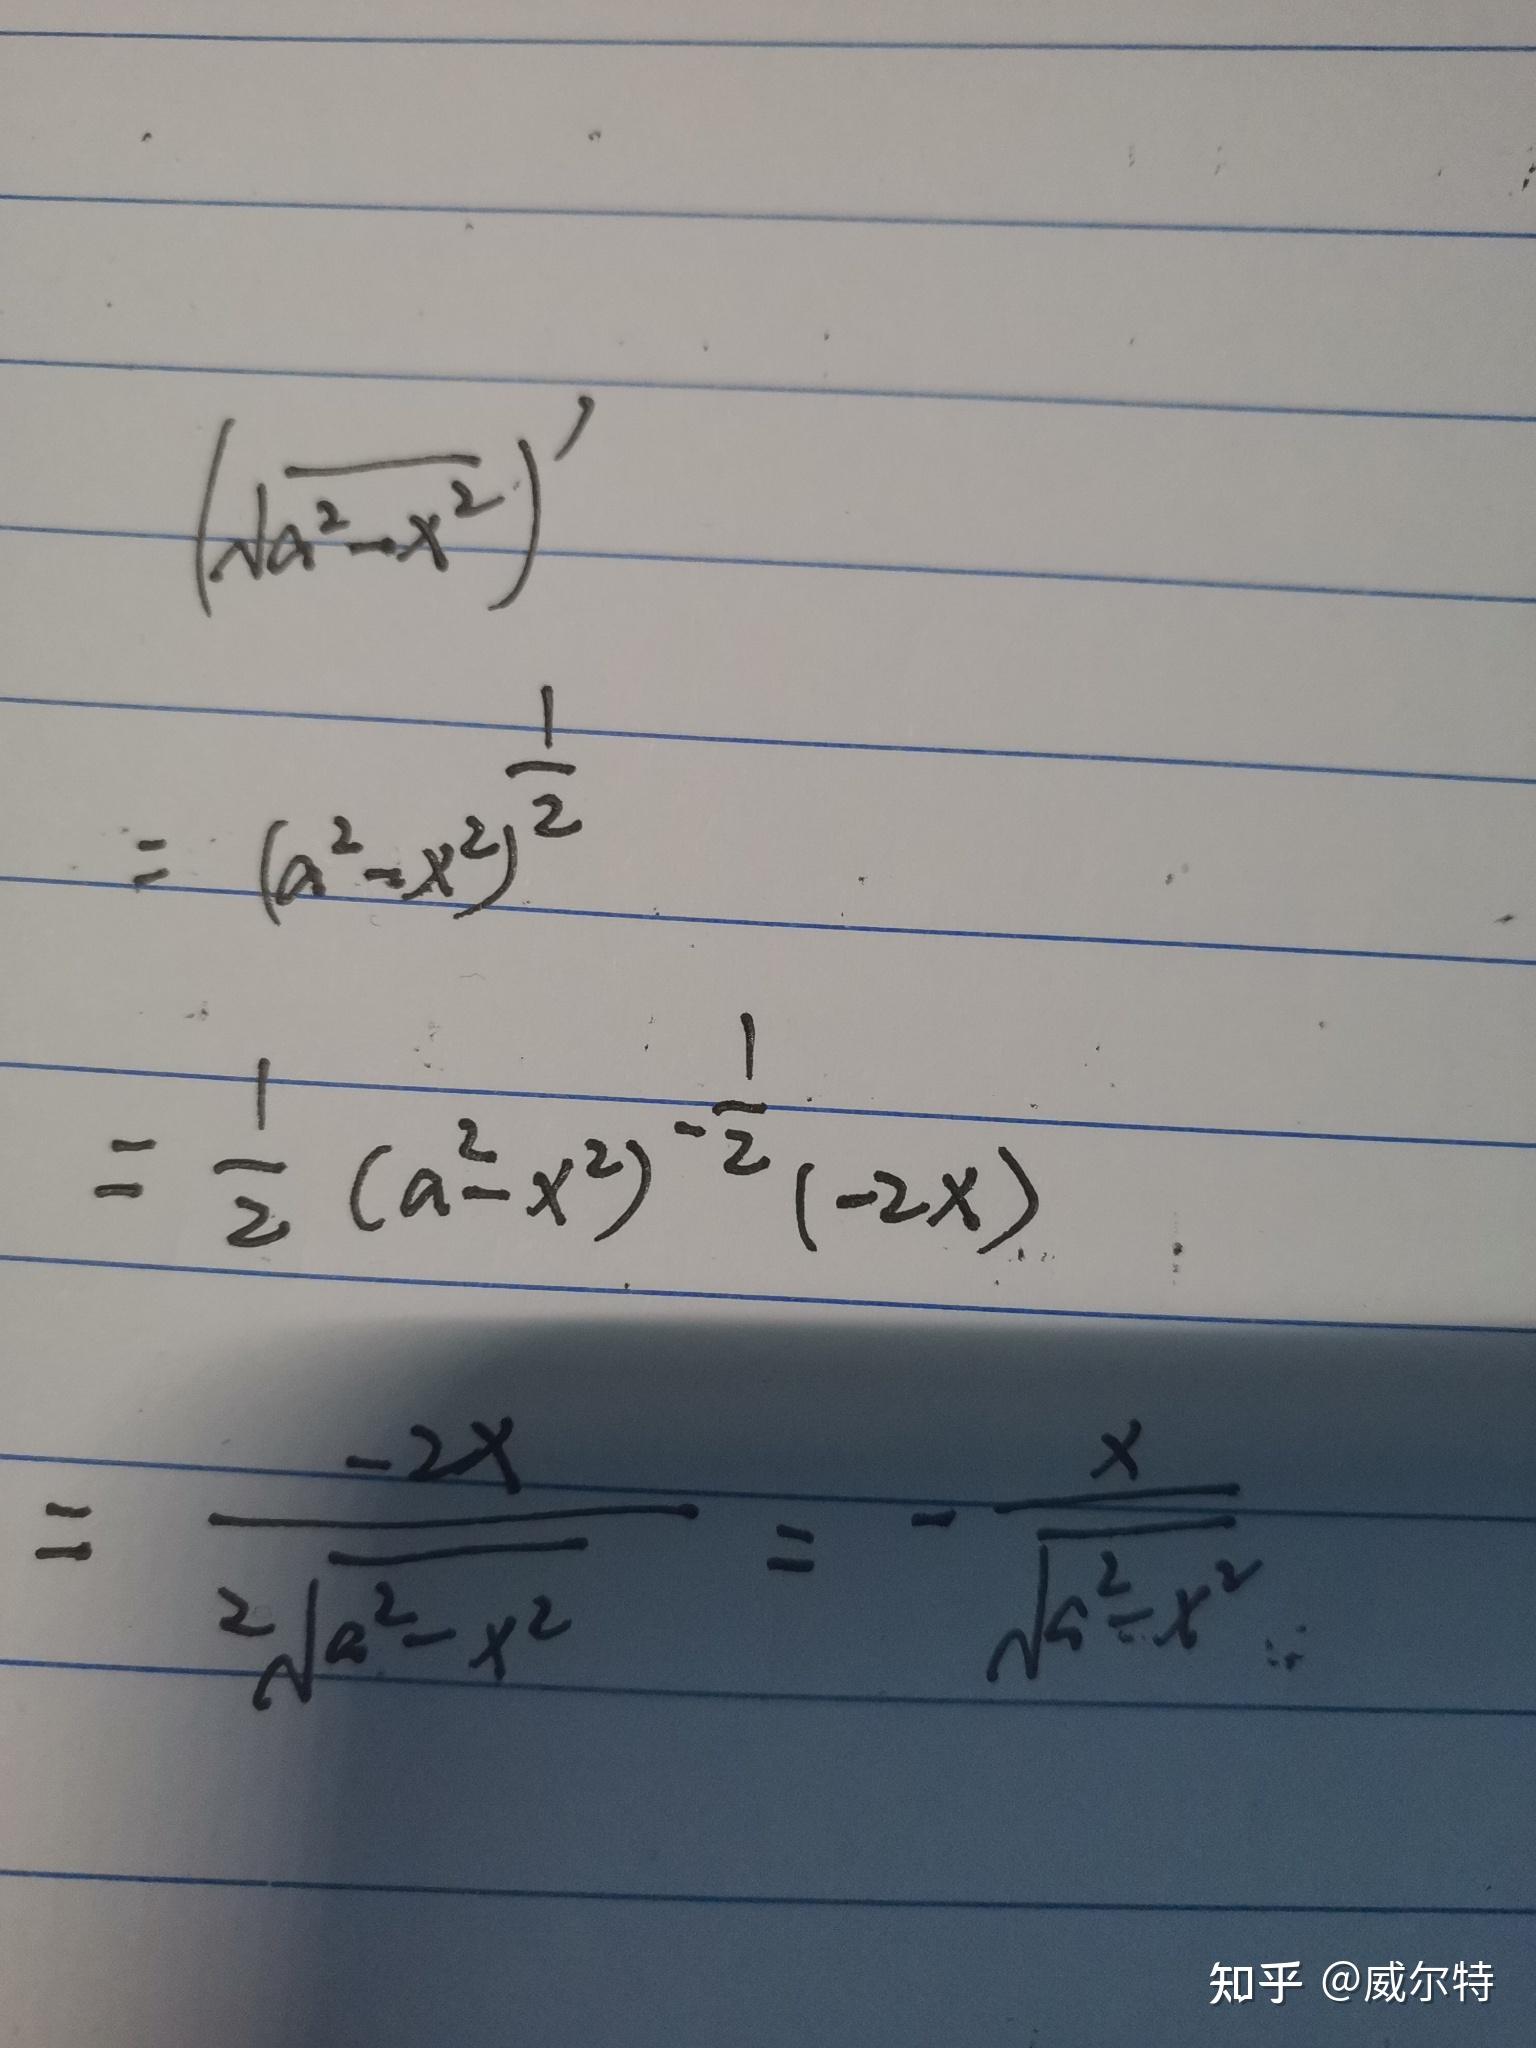 (√(a²-x²))'
= (a²-x²)^(1/2)
= 1/2 (a²-x²)^(-1/2) (-2x)
= -2x/(2√(a²-x²)) = - x/√(a²-x²)
知乎 @威尔特